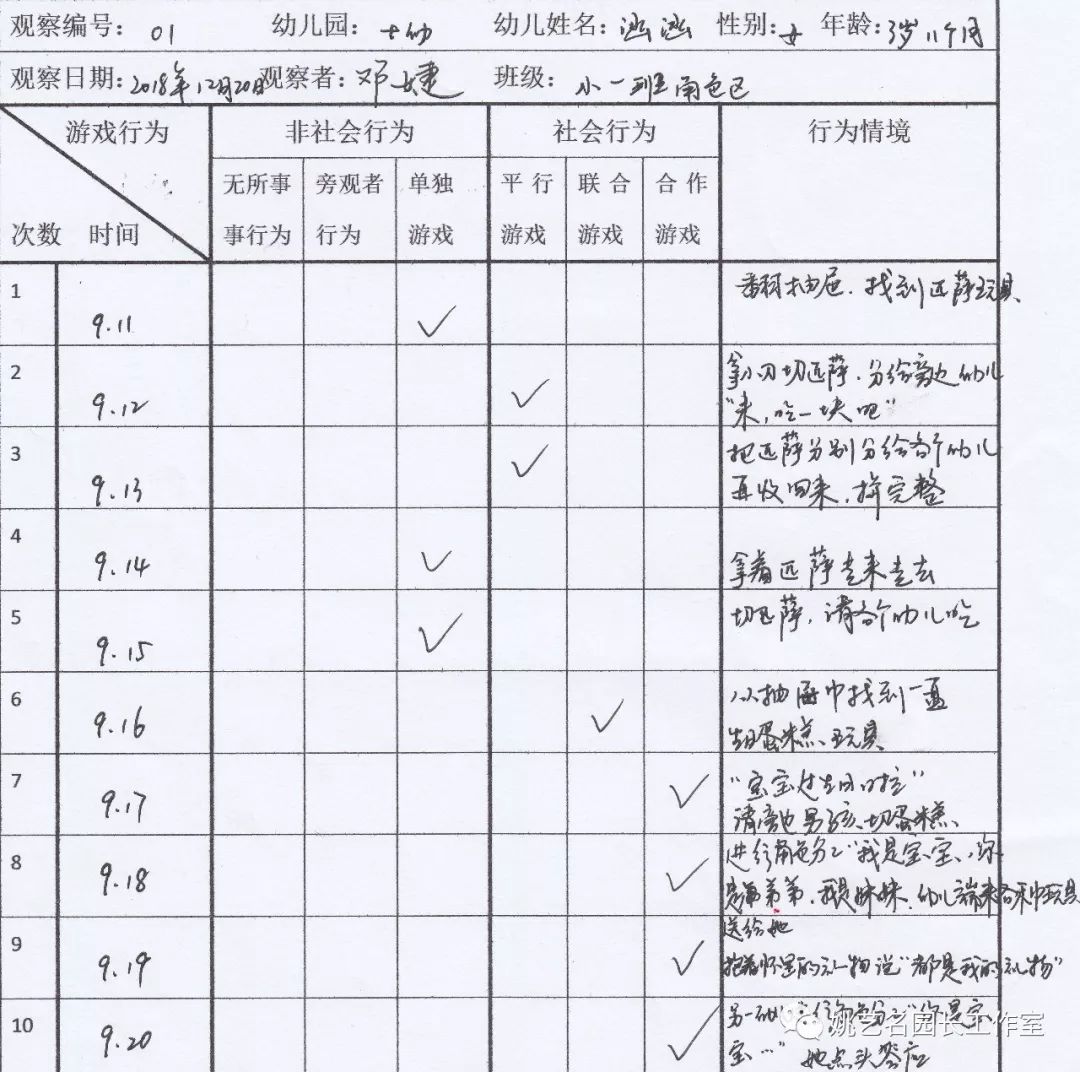 观察编号： 01 幼儿园：十幼 幼儿姓名：涵涵 性别：女 年龄：3岁11个月
观察日期：2018年12月20日 观察者：邓婕 班级： 小一班角色区
游戏行为 非社会行为 社会行为 行为情境
无所事 旁观者 单独 平行 联合 合作
次数 时间 事行为 行为 游戏 游戏 游戏 游戏
1 9.11 ✓ 翻抽屉，找到匹萨玩具
2 9.12 ✓ 拿小刀切匹萨，分给旁边幼儿
"来，吃一块吧"
3 9.13 ✓ 把匹萨分别分给各个幼儿
再收回来，拼完整
4 9.14 ✓ 拿着匹萨走来走去
5 9.15 ✓ 切匹萨，请各个幼儿吃
6 9.16 ✓ 从抽屉中找到一盒
生日蛋糕玩具
7 9.17 ✓ "宝宝过生日啦"
请旁边男孩切蛋糕
8 9.18 ✓ 进行角色分工"我是宝宝，你
是弟弟，我是妹妹，幼儿端来各种玩具
送给她
9 9.19 ✓ 抱着怀里的礼物说"都是我的礼物"
10 9.20 ✓ 另一 "你是宝
宝…" 她点头答应
姚艺名园长工作室